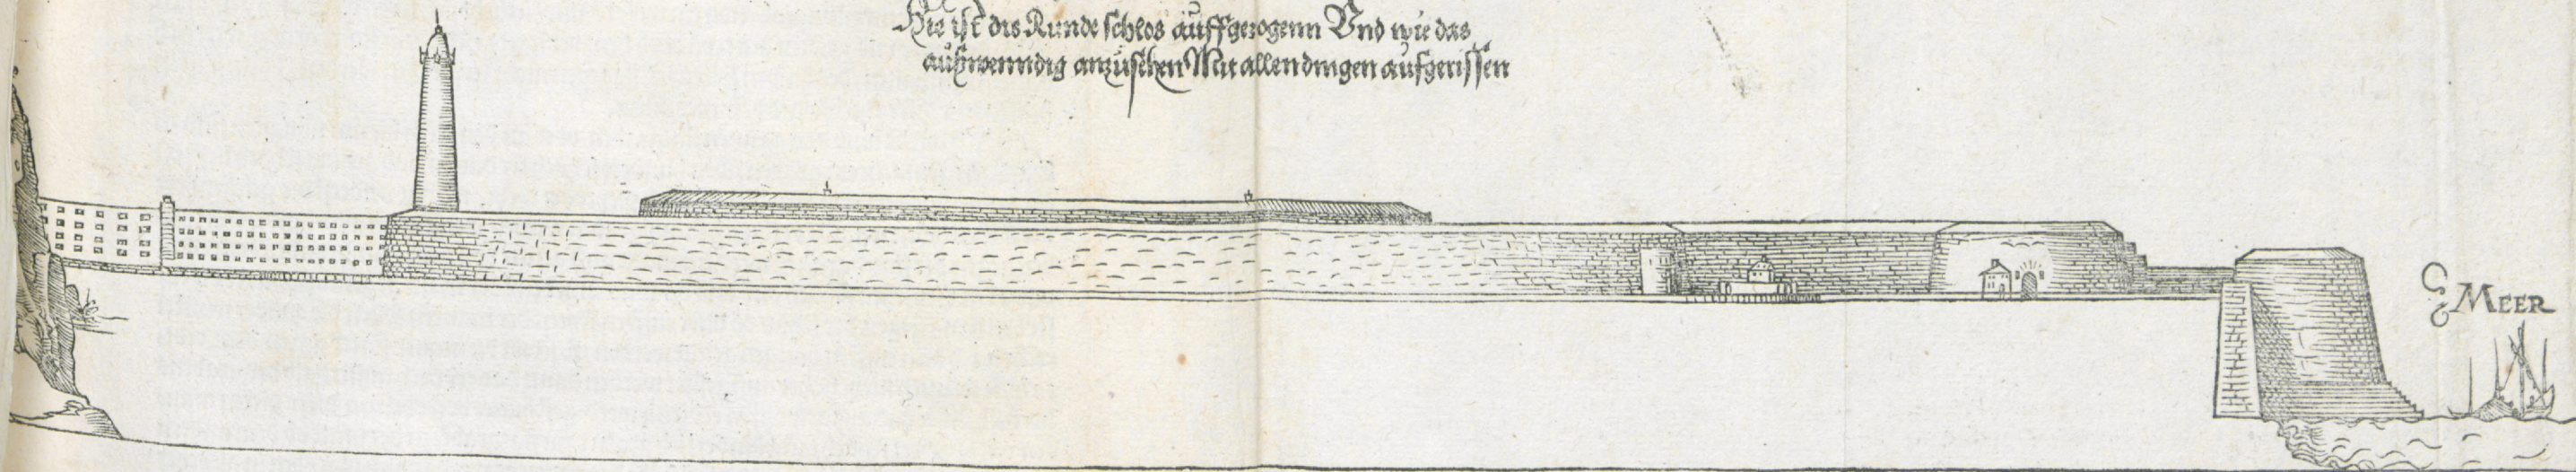 Hie ist dis Runde schlos auffgezogenn Vnd wie das
außwenndig anzusehen Mit allen dingen aufgerissen
MEER